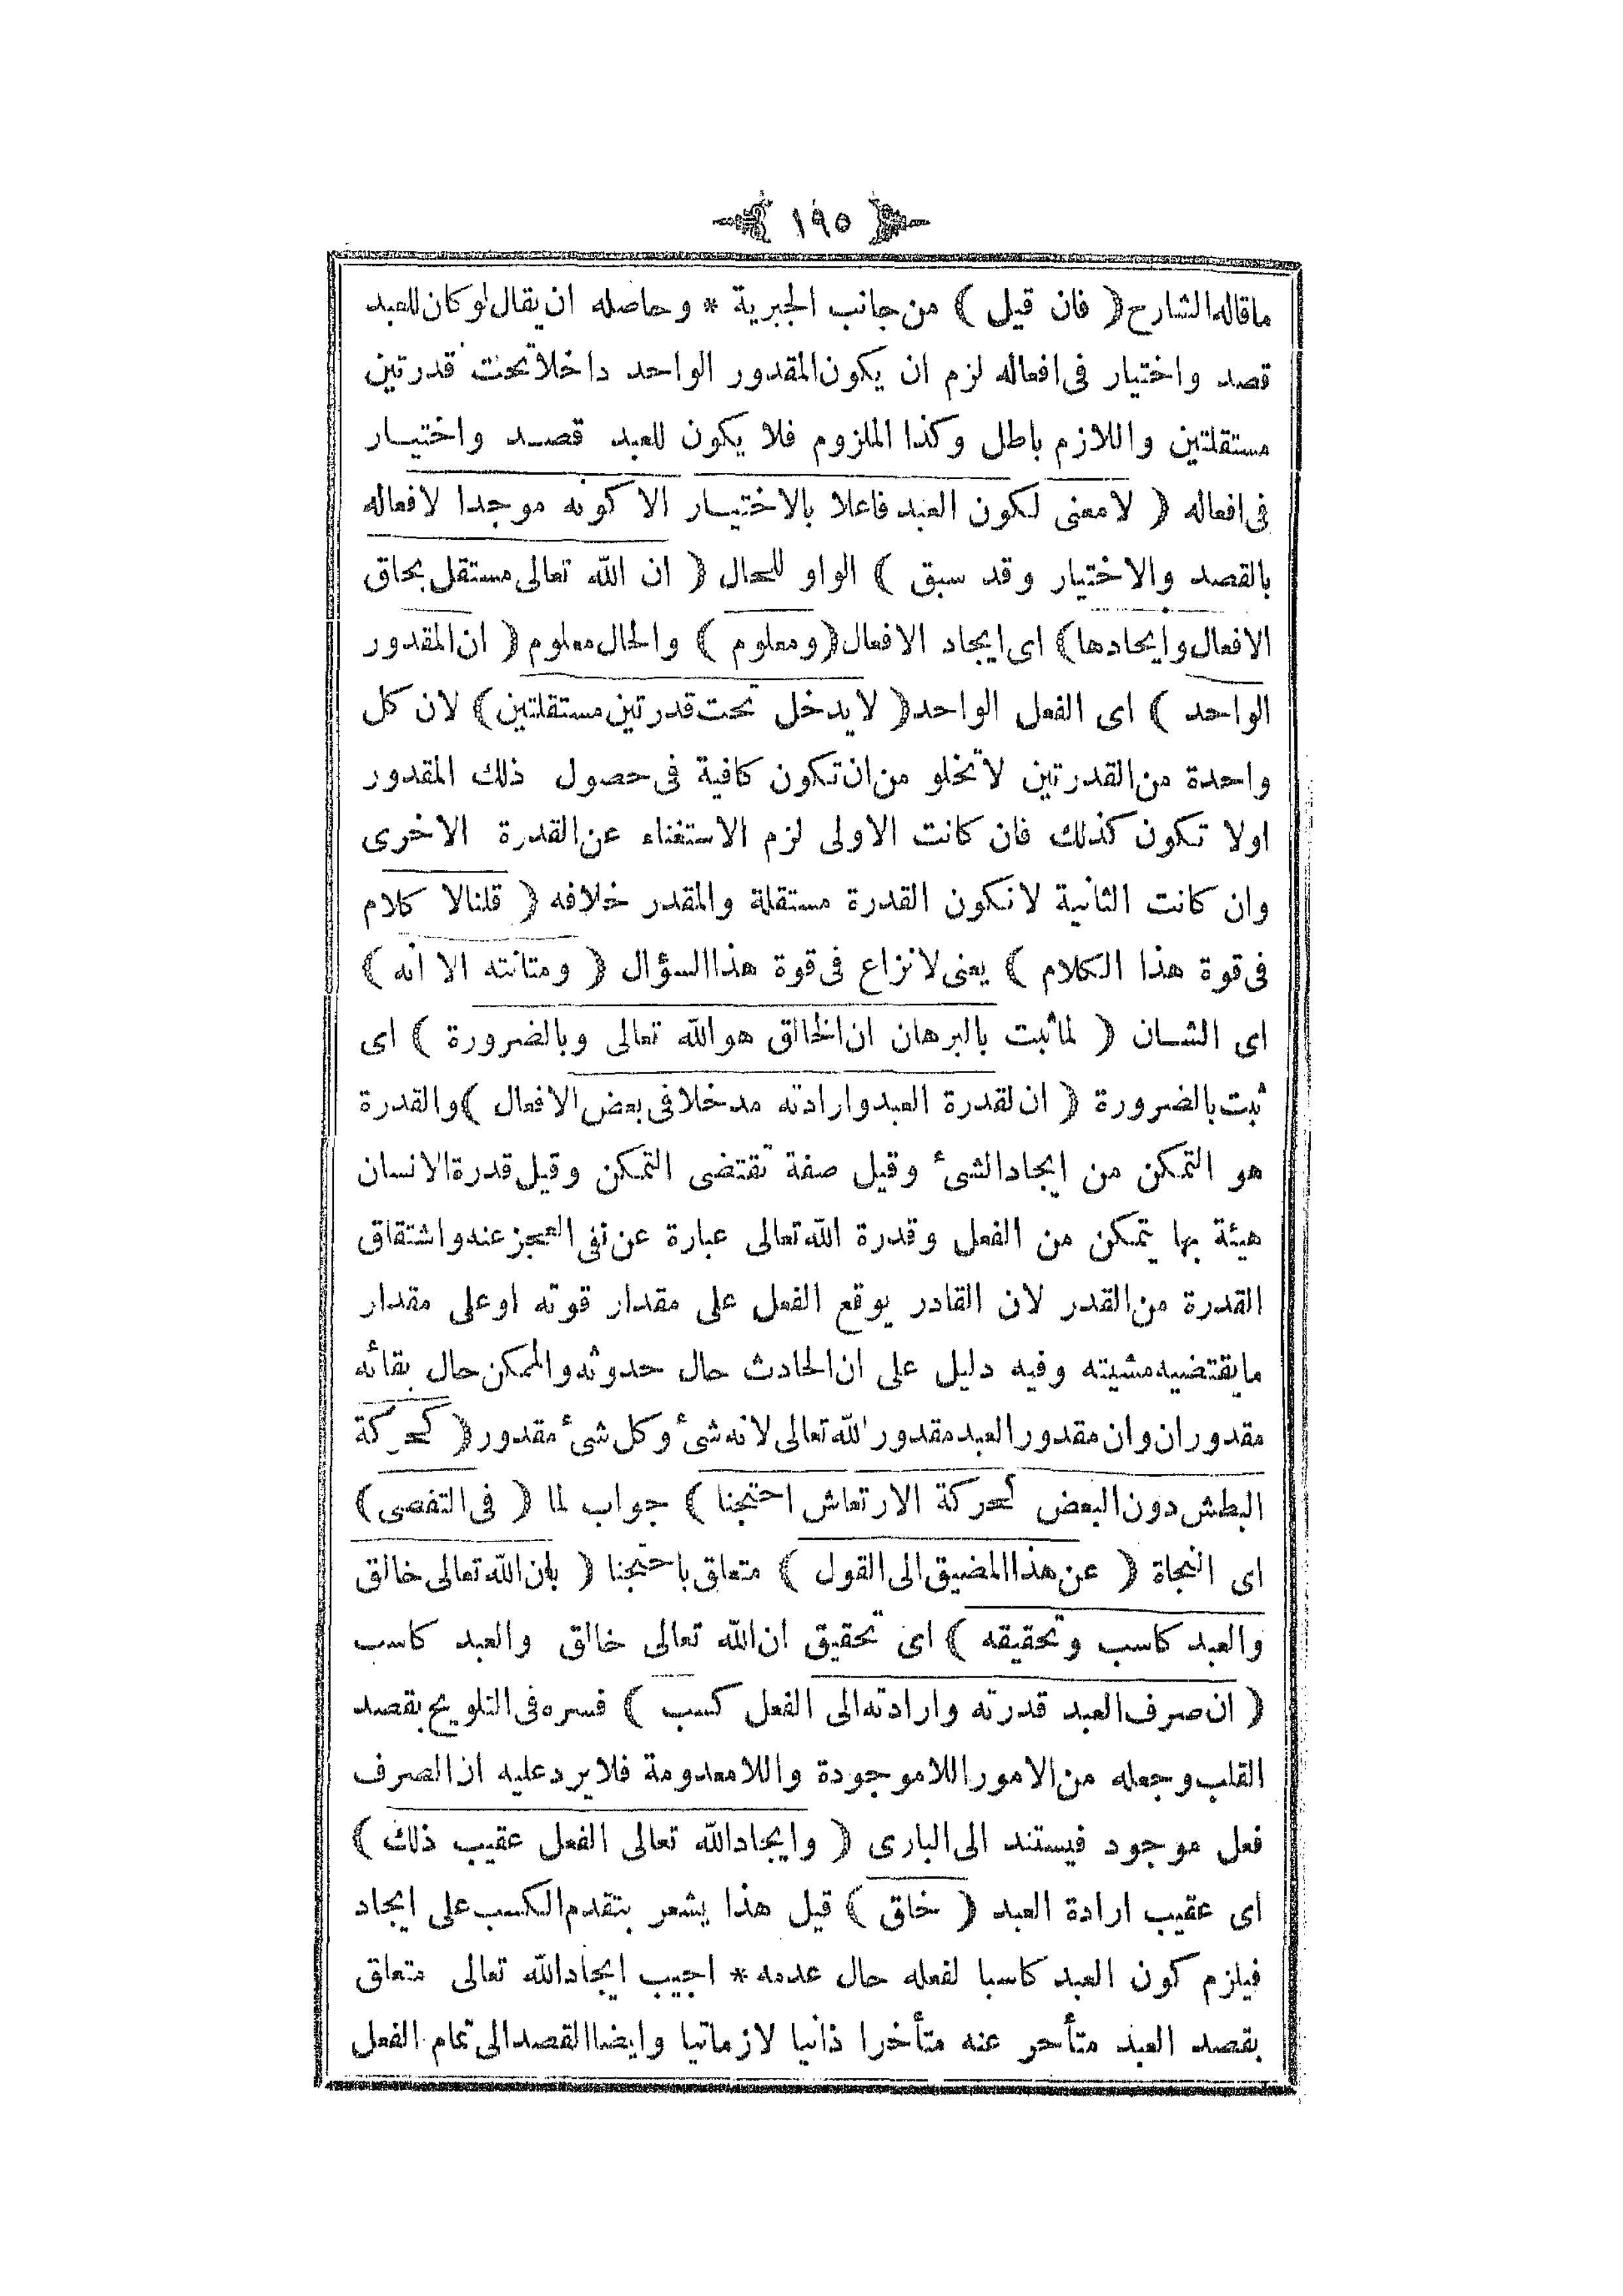 ١٩٥
ماقاله الشارح ( فان قيل ) من جانب الجبرية * وحاصله ان يقال لو كان للعبد
قصد واختيار فى افعاله لزم ان يكون المقدور الواحد داخلا تحت قدرتين
مستقلتين واللازم باطل وكذا الملزوم فلا يكون للعبد قصد واختيار
فى افعاله ( لا معنى لكون العبد فاعلا بالاختيار الا كونه موجدا لافعاله
بالقصد والاختيار وقد سبق ) الواو للحال ( ان الله تعالى مستقل بخلق
الافعال وايجادها ) اى ايجاد الافعال ( ومعلوم ) والحال معلوم ( ان المقدور
الواحد ) اى الفعل الواحد ( لا يدخل تحت قدرتين مستقلتين ) لان كل
واحدة من القدرتين لا تخلو من ان تكون كافية فى حصول ذلك المقدور
اولا تكون كذلك فان كانت الاولى لزم الاستغناء عن القدرة الاخرى
وان كانت الثانية لا تكون القدرة مستقلة والمقدر خلافه ( قلنا لا كلام
فى قوة هذا الكلام ) يعنى لا نزاع فى قوة هذا السؤال ( ومتانته الا انه )
اى الشان ( لما ثبت بالبرهان ان الخالق هو الله تعالى وبالضرورة ) اى
ثبت بالضرورة ( ان لقدرة العبد وارادته مدخلا فى بعض الافعال ) والقدرة
هو التمكن من ايجاد الشئ وقيل صفة تقتضى التمكن وقيل قدرة الانسان
هيئة بها يتمكن من الفعل وقدرة الله تعالى عبارة عن نفى العجز عنه واشتقاق
القدرة من القدر لان القادر يوقع الفعل على مقدار قوته او على مقدار
ما يقتضيه مشيته وفيه دليل على ان الحادث حال حدوثه والممكن حال بقائه
مقدوران وان مقدور العبد مقدور لله تعالى لانه شئ وكل شئ مقدور ( كحركة
البطش دون البعض كحركة الارتعاش احتجنا ) جواب لما ( فى التفصى )
اى النجاة ( عن هذا المضيق الى القول ) متعلق باحتجنا ( بان الله تعالى خالق
والعبد كاسب وتحقيقه ) اى تحقيق ان الله تعالى خالق والعبد كاسب
( ان صرف العبد قدرته وارادته الى الفعل كسب ) فسره فى التلويح بقصد
القلب وجعله من الامور اللاموجودة واللامعدومة فلا يرد عليه ان الصرف
فعل موجود فيستند الى البارى ( وايجاد الله تعالى الفعل عقيب ذلك )
اى عقيب ارادة العبد ( خلق ) قيل هذا يشعر بتقدم الكسب على ايجاد
فيلزم كون العبد كاسبا لفعله حال عدمه * اجيب ايجاد الله تعالى متعلق
بقصد العبد متأخر عنه متأخرا ذاتيا لا زمانيا وايضا القصد الى تمام الفعل